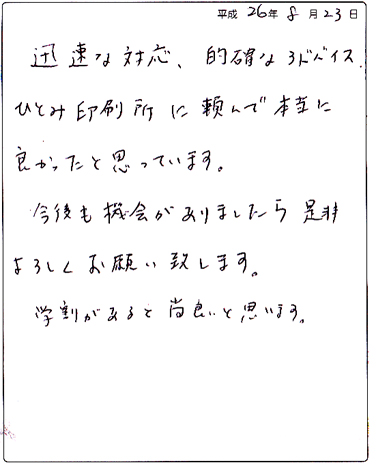 平成 26年 8月 23日
迅速な対応、的確なアドバイス、
ひとみ印刷所に頼んで本当に
良かったと思っています。
今後も機会がありましたら是非
よろしくお願い致します。
学割があると尚良いと思います。